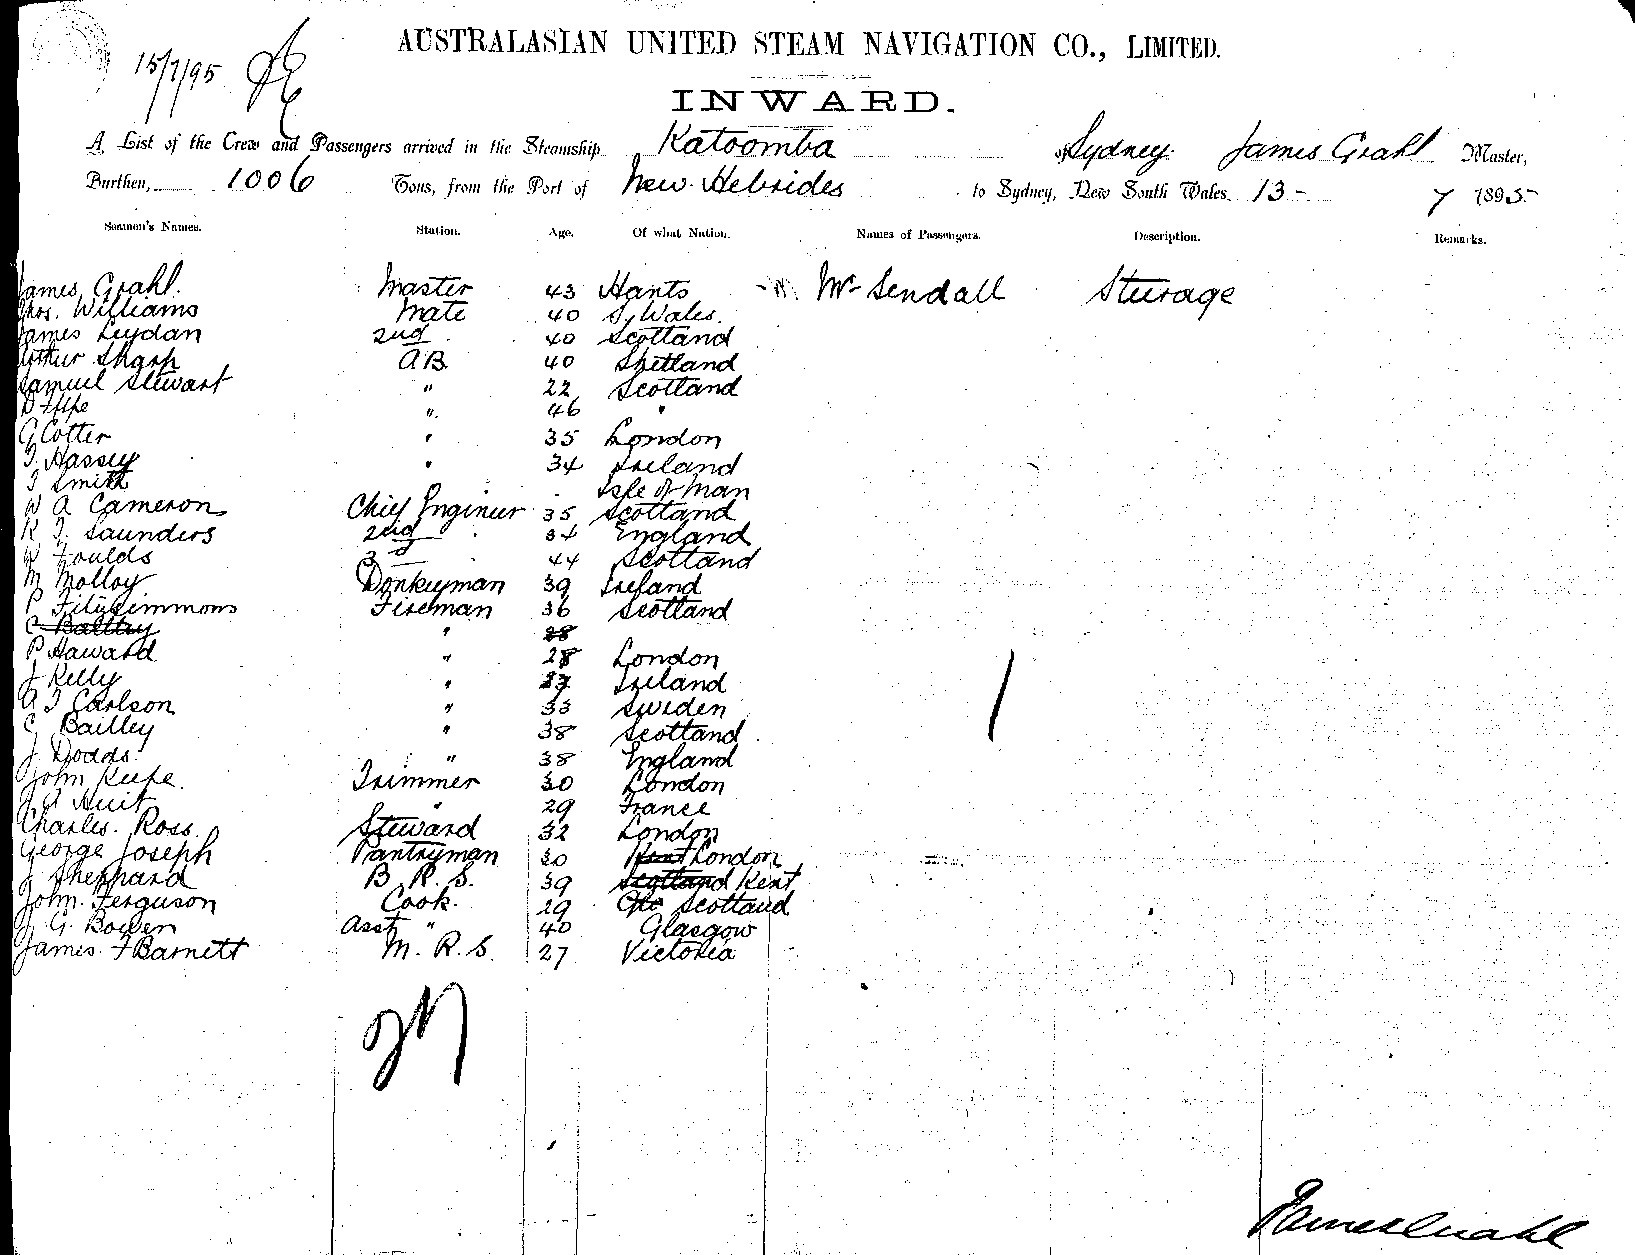 15/7/95
AUSTRALASIAN UNITED STEAM NAVIGATION CO., LIMITED.
INWARD.
A List of the Crew and Passengers arrived in the Steamship Katoomba of Sydney James Grahl Master,
Burthen, 1006 Tons, from the Port of New Hebrides to Sydney, New South Wales 13 - 7 1895
Seamen's Names. Station. Age. Of what Nation. Names of Passengers. Description. Remarks.
James Grahl. Master 43 Hants Mr Sendall Steerage
Thos. Williams Mate 40 S. Wales.
James Leydan 2nd 40 Scotland
Arthur Sharp AB 40 Shetland
Samuel Stewart " 22 Scotland
D ". 46 "
G Cotter " 35 London
T. Hassey " 34 Ireland
T Smith Isle of Man
W A Cameron Chief Engineer 35 Scotland
R T. Saunders 2nd 34 England
W Foulds 3rd 44 Scotland
M Molloy Donkeyman 39 Ireland
P Fitzsimmons Fireman 36 Scotland
C Bailley " 28
P Haward " 28 London
J Kelly " Ireland
A T Carlson " 33 Sweden
C Bailley " 38 Scotland
J. Dodds " 38 England
John Keefe. Trimmer 30 London
J A Huit " 29 France
Charles. Ross. Steward 32 London
George Joseph Pantryman 30 Kent London
J Sheppard B. R. S. 39 Scotland Kent
John. Ferguson Cook. 29 Scotland
J. G. Bowen Asst " 40 Glasgow
James. F Barnett M. R. S. 27 Victoria
James Grahl